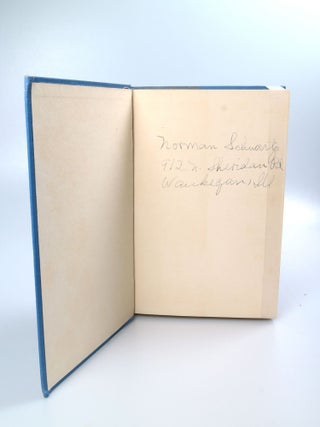 Norman Schwartz
912 N Sheridan Rd
Waukegan, Ill